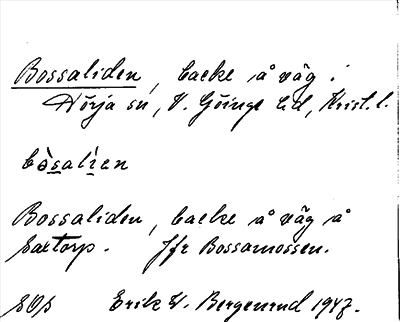 Bossaliden, backe å väg i
Nörja sn, V. Göinge hd, Krist. l.
bòsalìen
Bossaliden, backe å väg å
Saxtorp. Jfr Bossamossen.
Erik W. Bergenrud 1947.